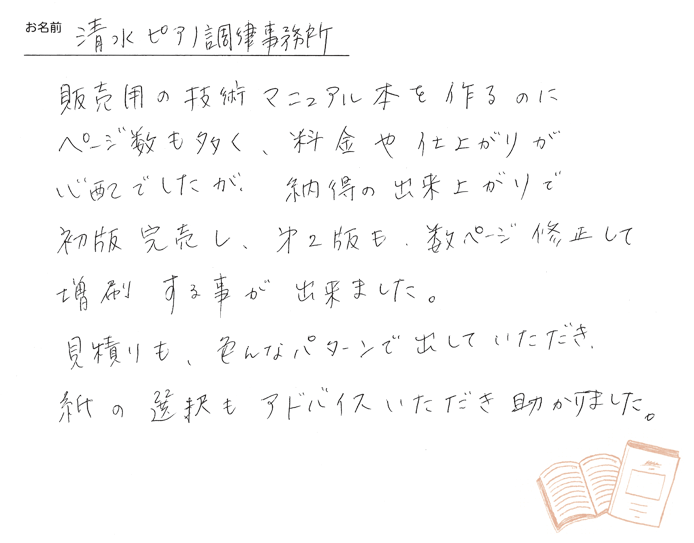 お名前 清水ピアノ調律事務所
販売用の技術マニュアル本を作るのに
ページ数も多く、料金や仕上がりが
心配でしたが、納得の出来上がりで
初版完売し、第2版も、数ページ修正して
増刷する事が出来ました。
見積りも、色んなパターンで出していただき、
紙の選択もアドバイスいただき助かりました。